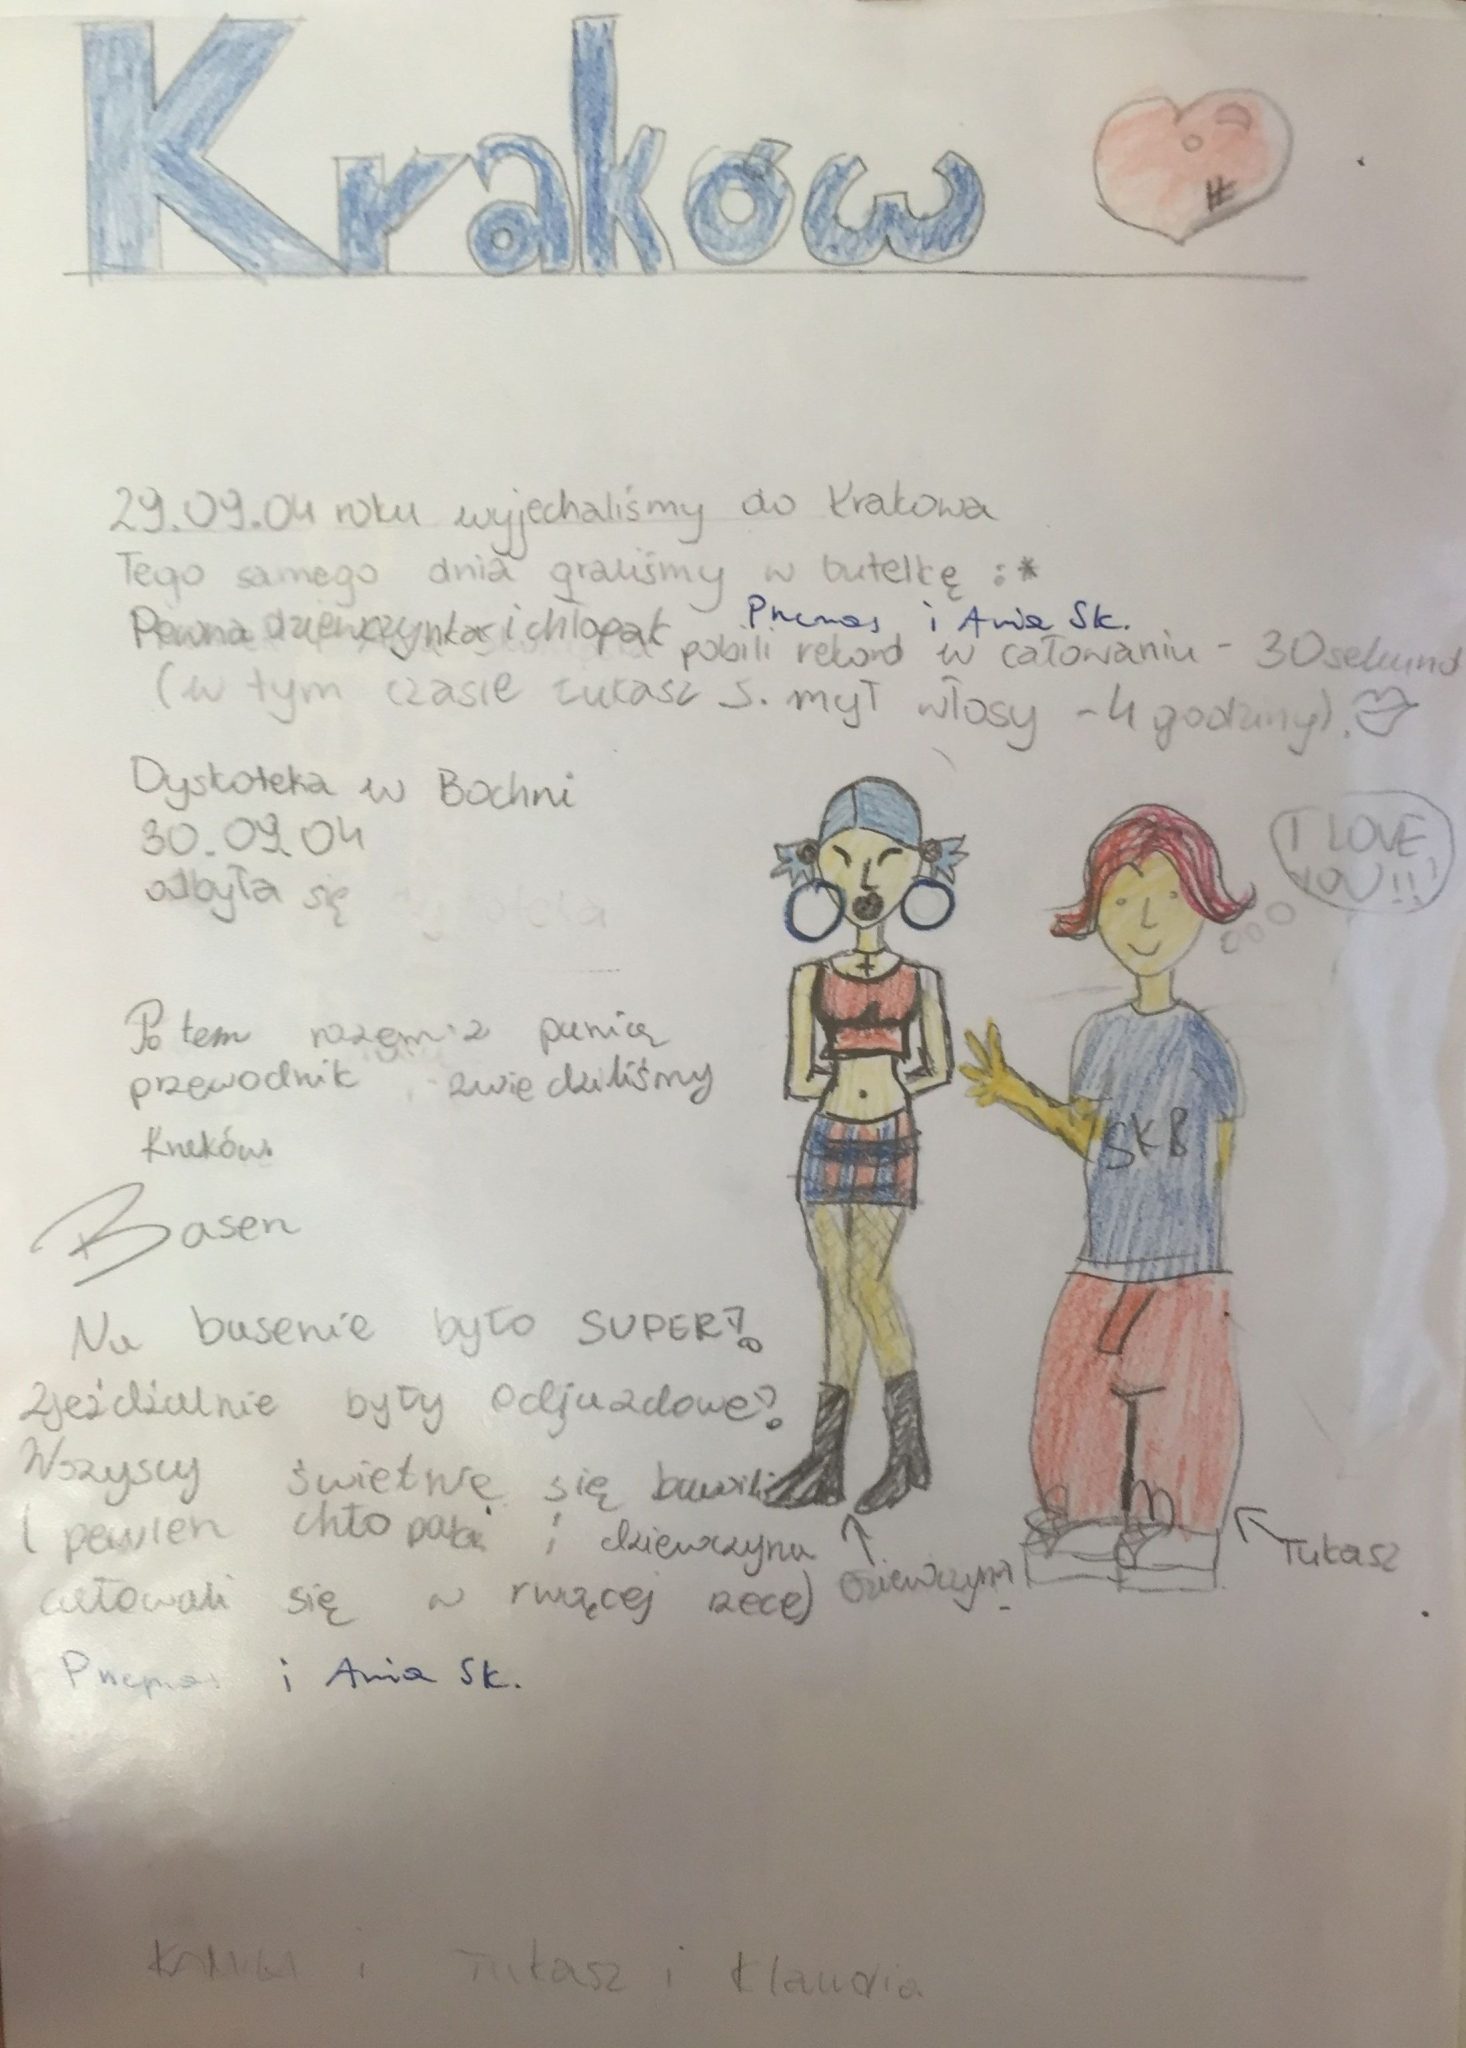 Kraków
29.09.04 roku wyjechaliśmy do Krakowa
Tego samego dnia graliśmy w butelkę :*
Pewna dziewczynka i chłopak
i Ania Sk.
pobili rekord w całowaniu - 30 sekund
(w tym czasie Łukasz S. mył włosy - 4 godziny).
Dyskoteka w Bochni
30.09.04
odbyła się
I LOVE
YOU!!!
SKB
Potem razem z panią
przewodnik zwiedziliśmy
Kraków
Basen
Na basenie było SUPER!
Zjeżdżalnie były odjazdowe!
Wszyscy świetnie się bawili
(pewien chłopak i dziewczyna
całowali się w rwącej rzece)
Dziewczyna
Łukasz
i Ania Sk.
i Łukasz i Klaudia